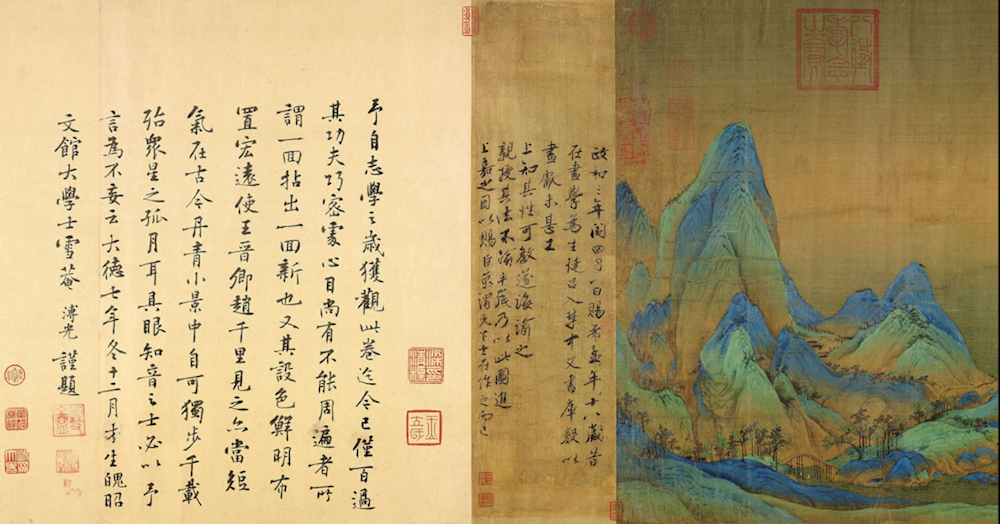 政和三年閏四月一日賜希孟年十八歲昔
在畫學為生徒召入禁中文書庫數以
畫獻未甚工
上知其性可教遂誨諭之
親授其法不踰半歲乃以此圖進
上嘉之因以賜臣京謂天下士在作之而已
予自志學之歲獲觀此卷迄今已僅百過
其功夫巧密處心目尚有不能周遍者所
謂一回拈出一回新也又其設色鮮明布
置宏遠使王晉卿趙千里見之亦當短
氣在古今丹青小景中自可獨步千載
殆衆星之孤月耳具眼知音之士必以予
言為不妄云大德七年冬十二月才生魄昭
文館大學士雪菴溥光謹題